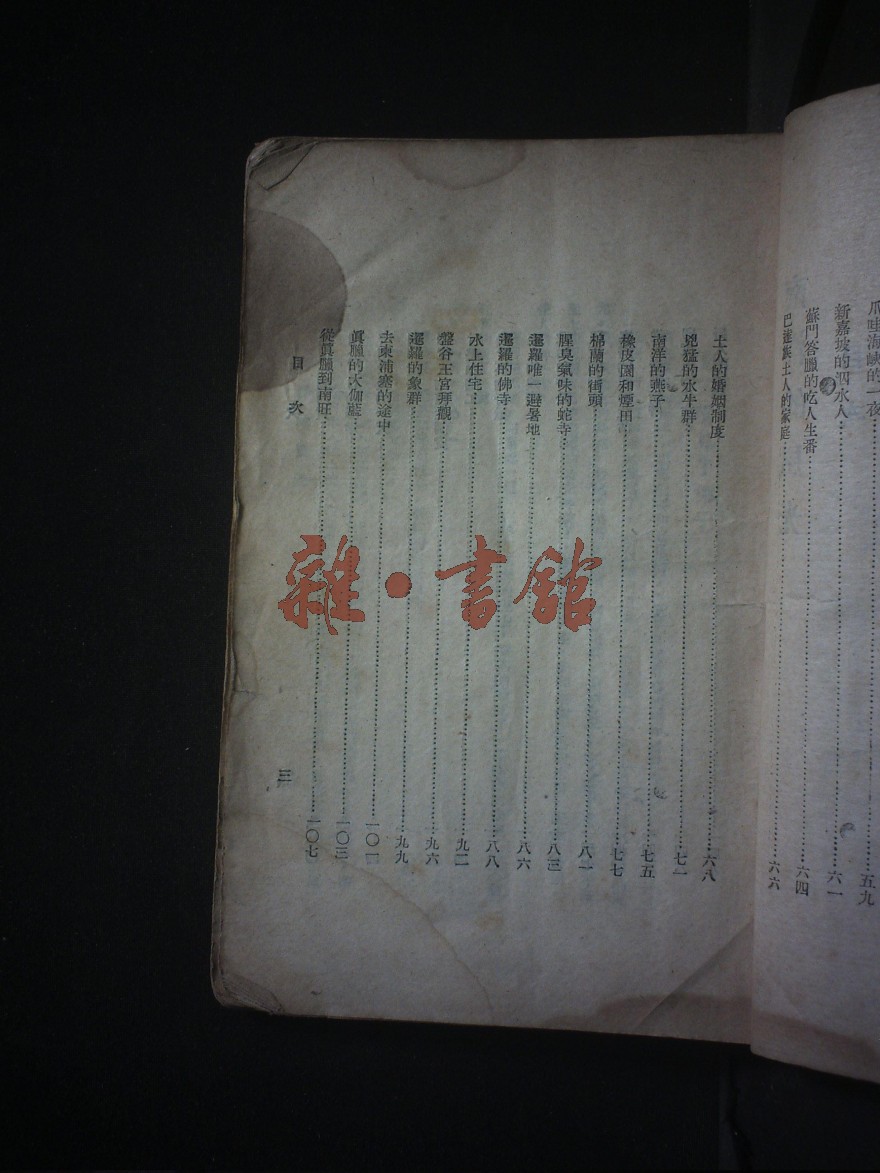 爪哇海峽的一夜……五九
新嘉坡的泅水人……六一
蘇門答臘的吃人生番……六四
巴達族土人的家庭……六六
土人的婚姻制度……六八
兇猛的水牛群……七一
南洋的燕子……七五
橡皮園和煙田……七七
棉蘭的街頭……八一
腥臭氣味的蛇寺……八三
暹羅唯一避暑地……八六
暹羅的佛寺……八八
水上住宅……九二
盤谷王宮拜觀……九六
暹羅的象群……九九
去柬浦塞的途中……一〇一
眞臘的大伽藍……一〇三
從眞臘到南旺……一〇七
目次
三
雜·書館